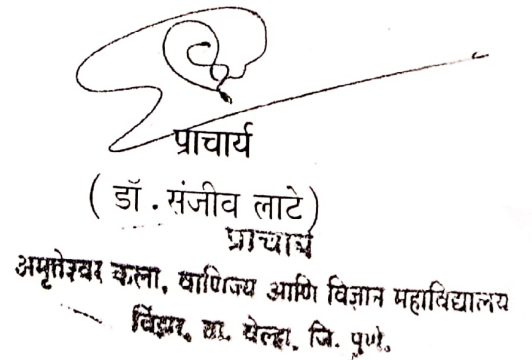 प्राचार्य
( डॉ . संजीव लाटे )
प्राचार्य
अमृतेश्वर कला, वाणिज्य आणि विज्ञान महाविद्यालय
विंझर, ता. वेल्हा, जि. पुणे.